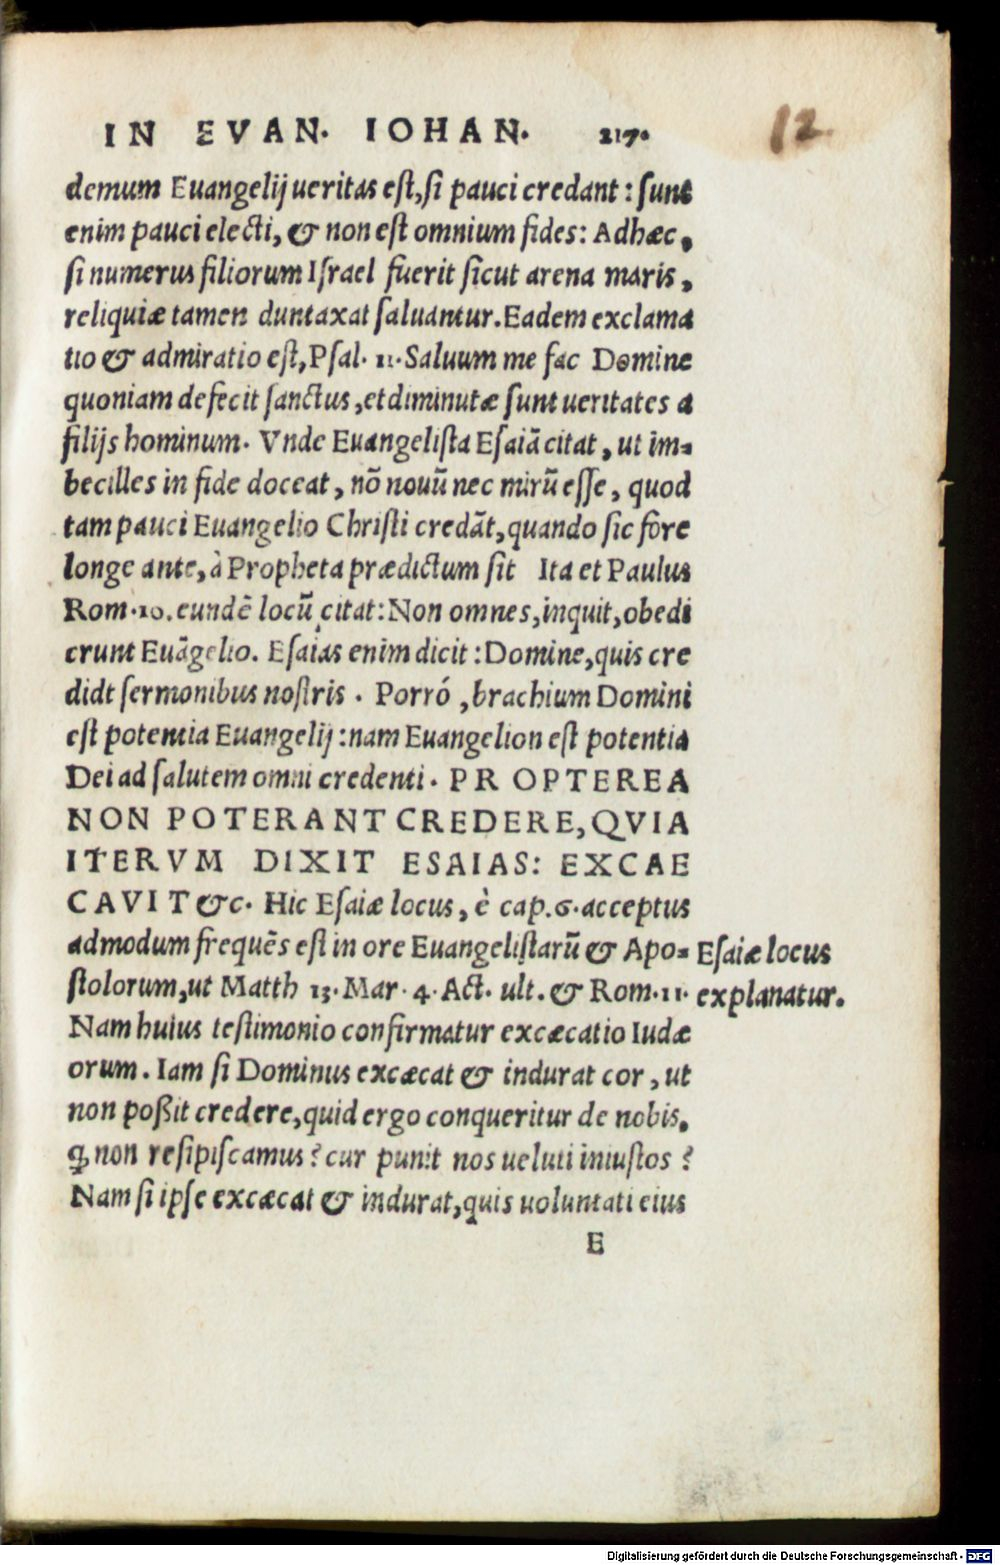 IN EVAN. IOHAN. 217.
12.
demum Euangelij ueritas est, si pauci credant: sunt
enim pauci electi, & non est omnium fides: Adhæc,
si numerus filiorum Israel fuerit sicut arena maris,
reliquiæ tamen duntaxat saluantur. Eadem exclama
tio & admiratio est, Psal. 11. Saluum me fac Domine
quoniam defecit sanctus, et diminutæ sunt ueritates a
filijs hominum. Vnde Euangelista Esaiā citat, ut im=
becilles in fide doceat, nō nouū nec mirū esse, quod
tam pauci Euangelio Christi credāt, quando sic fore
longe ante, à Propheta prædictum sit Ita et Paulus
Rom. 10. eundē locū citat: Non omnes, inquit, obedi
erunt Euāgelio. Esaias enim dicit: Domine, quis cre
didt sermonibus nostris. Porró, brachium Domini
est potentia Euangelij: nam Euangelion est potentia
Dei ad salutem omni credenti. PROPTEREA
NON POTERANT CREDERE, QVIA
ITERVM DIXIT ESAIAS: EXCAE
CAVIT &c. Hic Esaiæ locus, è cap. 6. acceptus
admodum frequēs est in ore Euangelistarū & Apo= Esaiæ locus
stolorum, ut Matth 13. Mar. 4. Act. ult. & Rom. 11. explanatur.
Nam huius testimonio confirmatur excæcatio Iudæ
orum. Iam si Dominus excæcat & indurat cor, ut
non poßit credere, quid ergo conqueritur de nobis,
ꝙ non resipiscamus? cur punit nos ueluti iniustos?
Nam si ipse excæcat & indurat, quis uoluntati eius
E
Digitalisierung gefördert durch die Deutsche Forschungsgemeinschaft - DFG